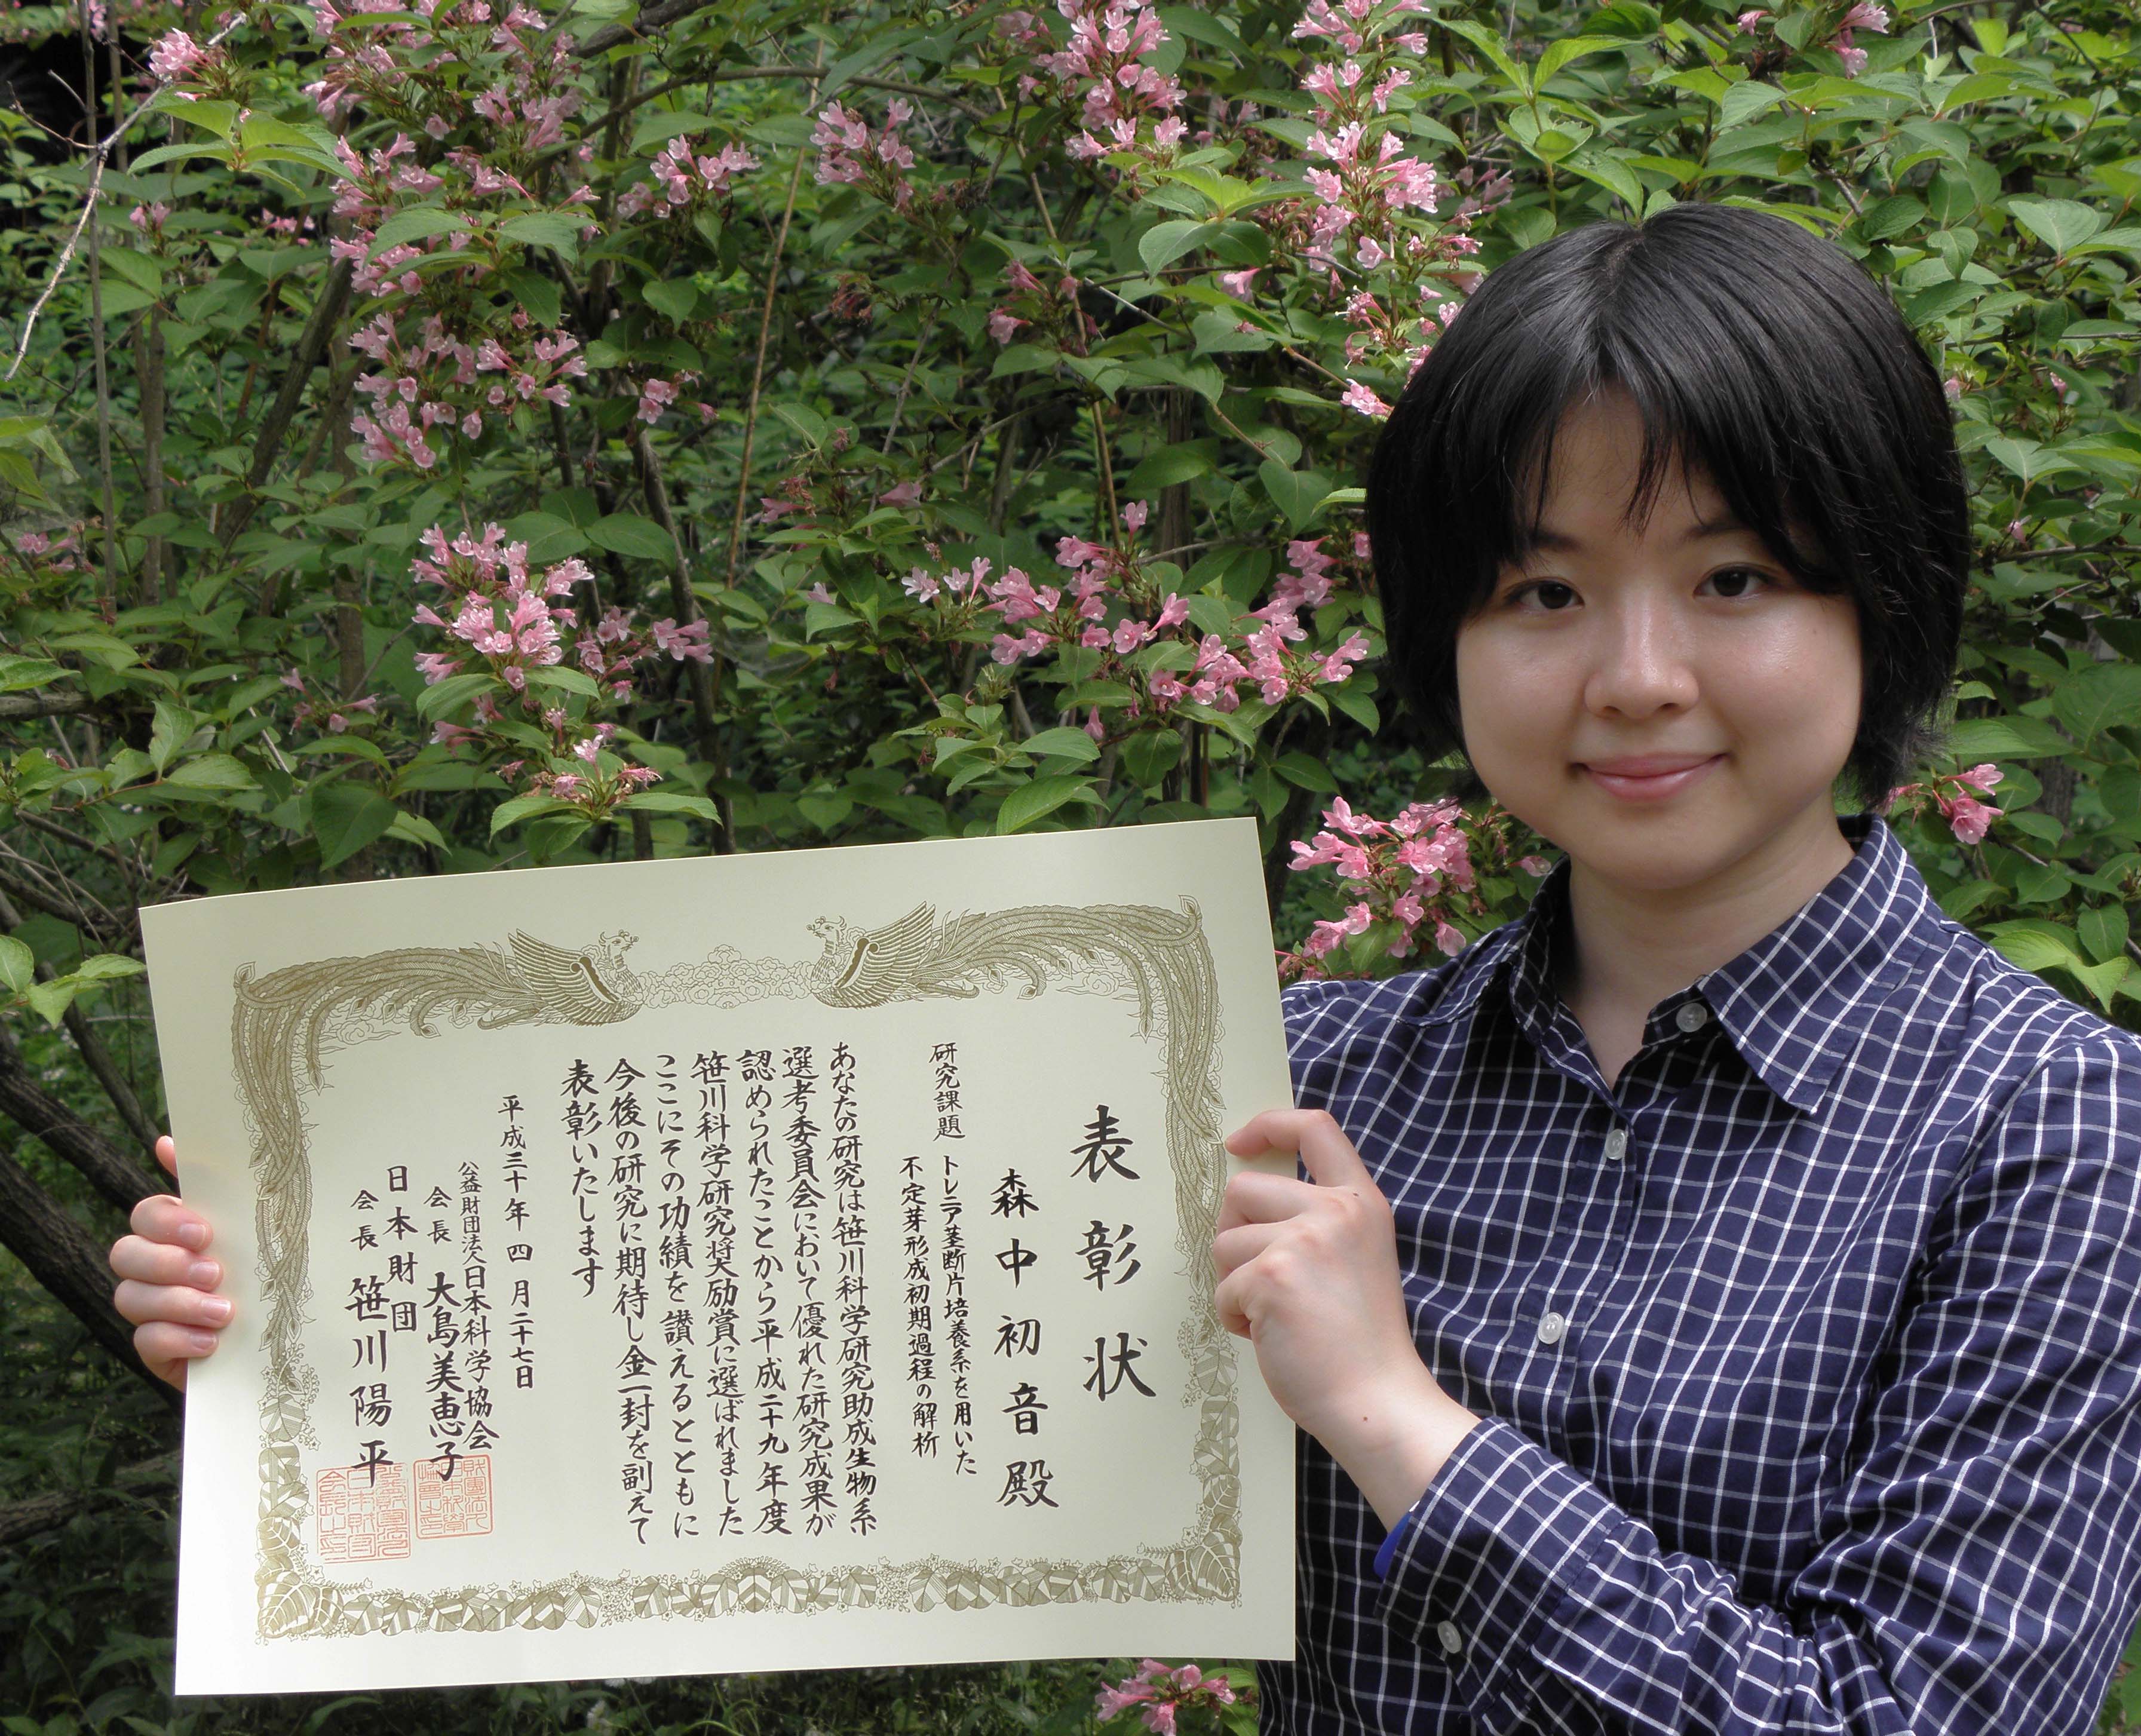 表彰状
森中初音殿
研究課題 トレニア茎断片培養系を用いた
不定芽形成初期過程の解析
あなたの研究は笹川科学研究助成生物系
選考委員会において優れた研究成果が
認められたことから平成二十九年度
笹川科学研究奨励賞に選ばれました
ここにその功績を讃えるとともに
今後の研究に期待し金一封を副えて
表彰いたします
平成三十年四月二十七日
公益財団法人日本科学協会
会長 大島美恵子
日本財団
会長 笹川陽平